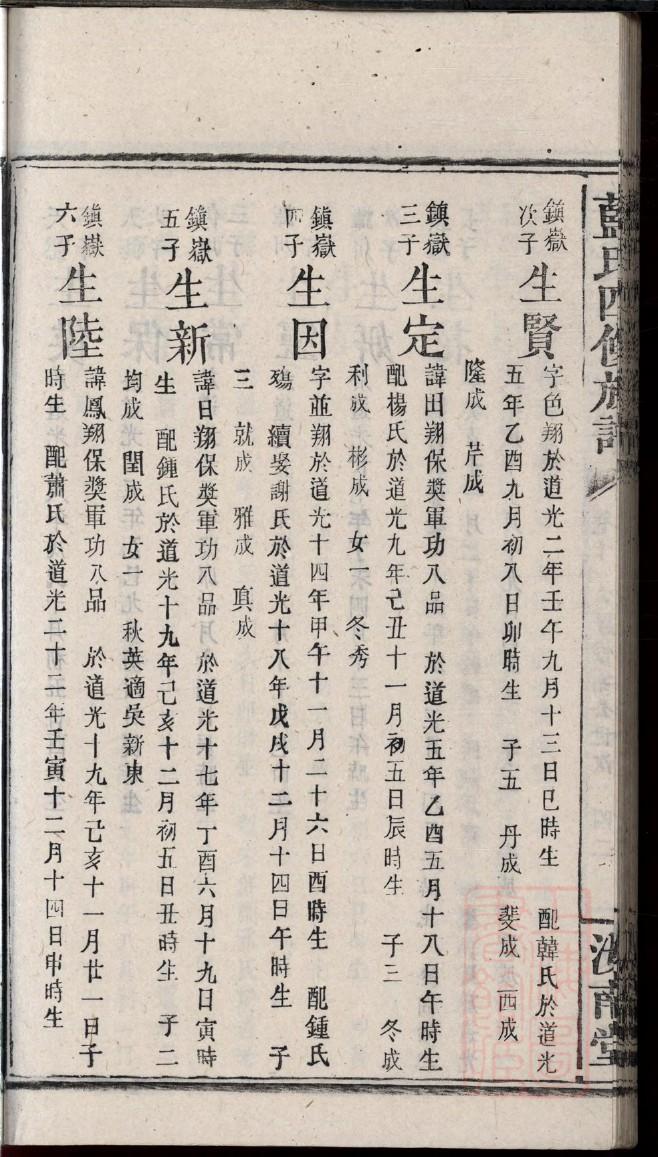 藍氏四修族譜
汝南堂
鎮嶽次子 生賢
字色翔於道光二年壬午九月十三日巳時生 配韓氏於道光
五年乙酉九月初八日卯時生 子五 丹成 斐成 西成
隆成 芹成
鎮嶽三子 生定
諱田翔保奬軍功八品 於道光五年乙酉五月十八日午時生
配楊氏於道光九年己丑十一月初五日辰時生 子三 冬成
利成 彬成 女一 冬秀
鎮嶽四子 生因
字並翔於道光十四年甲午十一月二十六日酉時生 配鍾氏
殤 續娶謝氏於道光十八年戊戌十二月十四日午時生 子
三 就成 雅成 真成
鎮嶽五子 生新
諱日翔保奬軍功八品 於道光十七年丁酉六月十九日寅時
生 配鍾氏於道光十九年己亥十二月初五日丑時生 子二
均成 閏成 女一 秋英適吳新東
鎮嶽六子 生陸
諱鳳翔保奬軍功八品 於道光十九年己亥十一月廿一日子
時生 配蕭氏於道光二十二年壬寅十二月十四日申時生